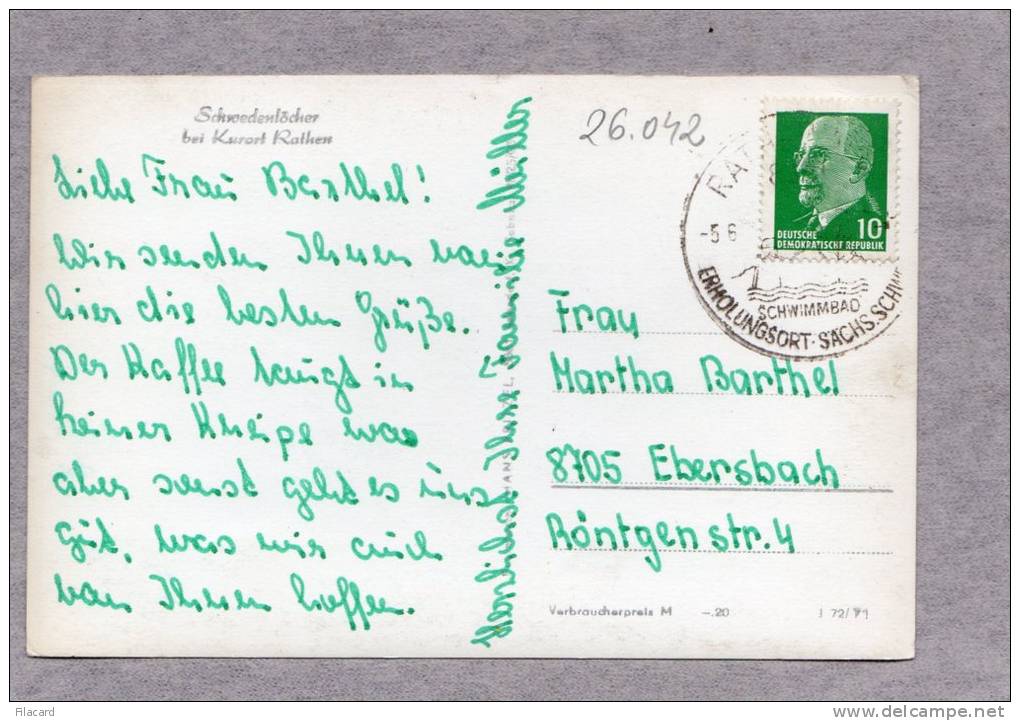 Schwedenlöcher
bei Kurort Rathen
26.042
Liebe Frau Barthel!
Wir senden Ihnen von
hier die besten Grüße.
Der Kaffee taugt in
keiner Kneipe was
aber sonst geht es uns
gut, was wir auch
von Ihnen hoffen.
Herzlichst Ihre Familie Müller
HANS
RAT
-5.6
SCHWIMMBAD
ERHOLUNGSORT·SÄCHS.SCHW
10
DEUTSCHE
DEMOKRATISCHE REPUBLIK
Frau
Martha Barthel
8705 Ebersbach
Röntgenstr. 4
Verbraucherpreis M -.20
J 72/71
Filacard
www.delcampe.net